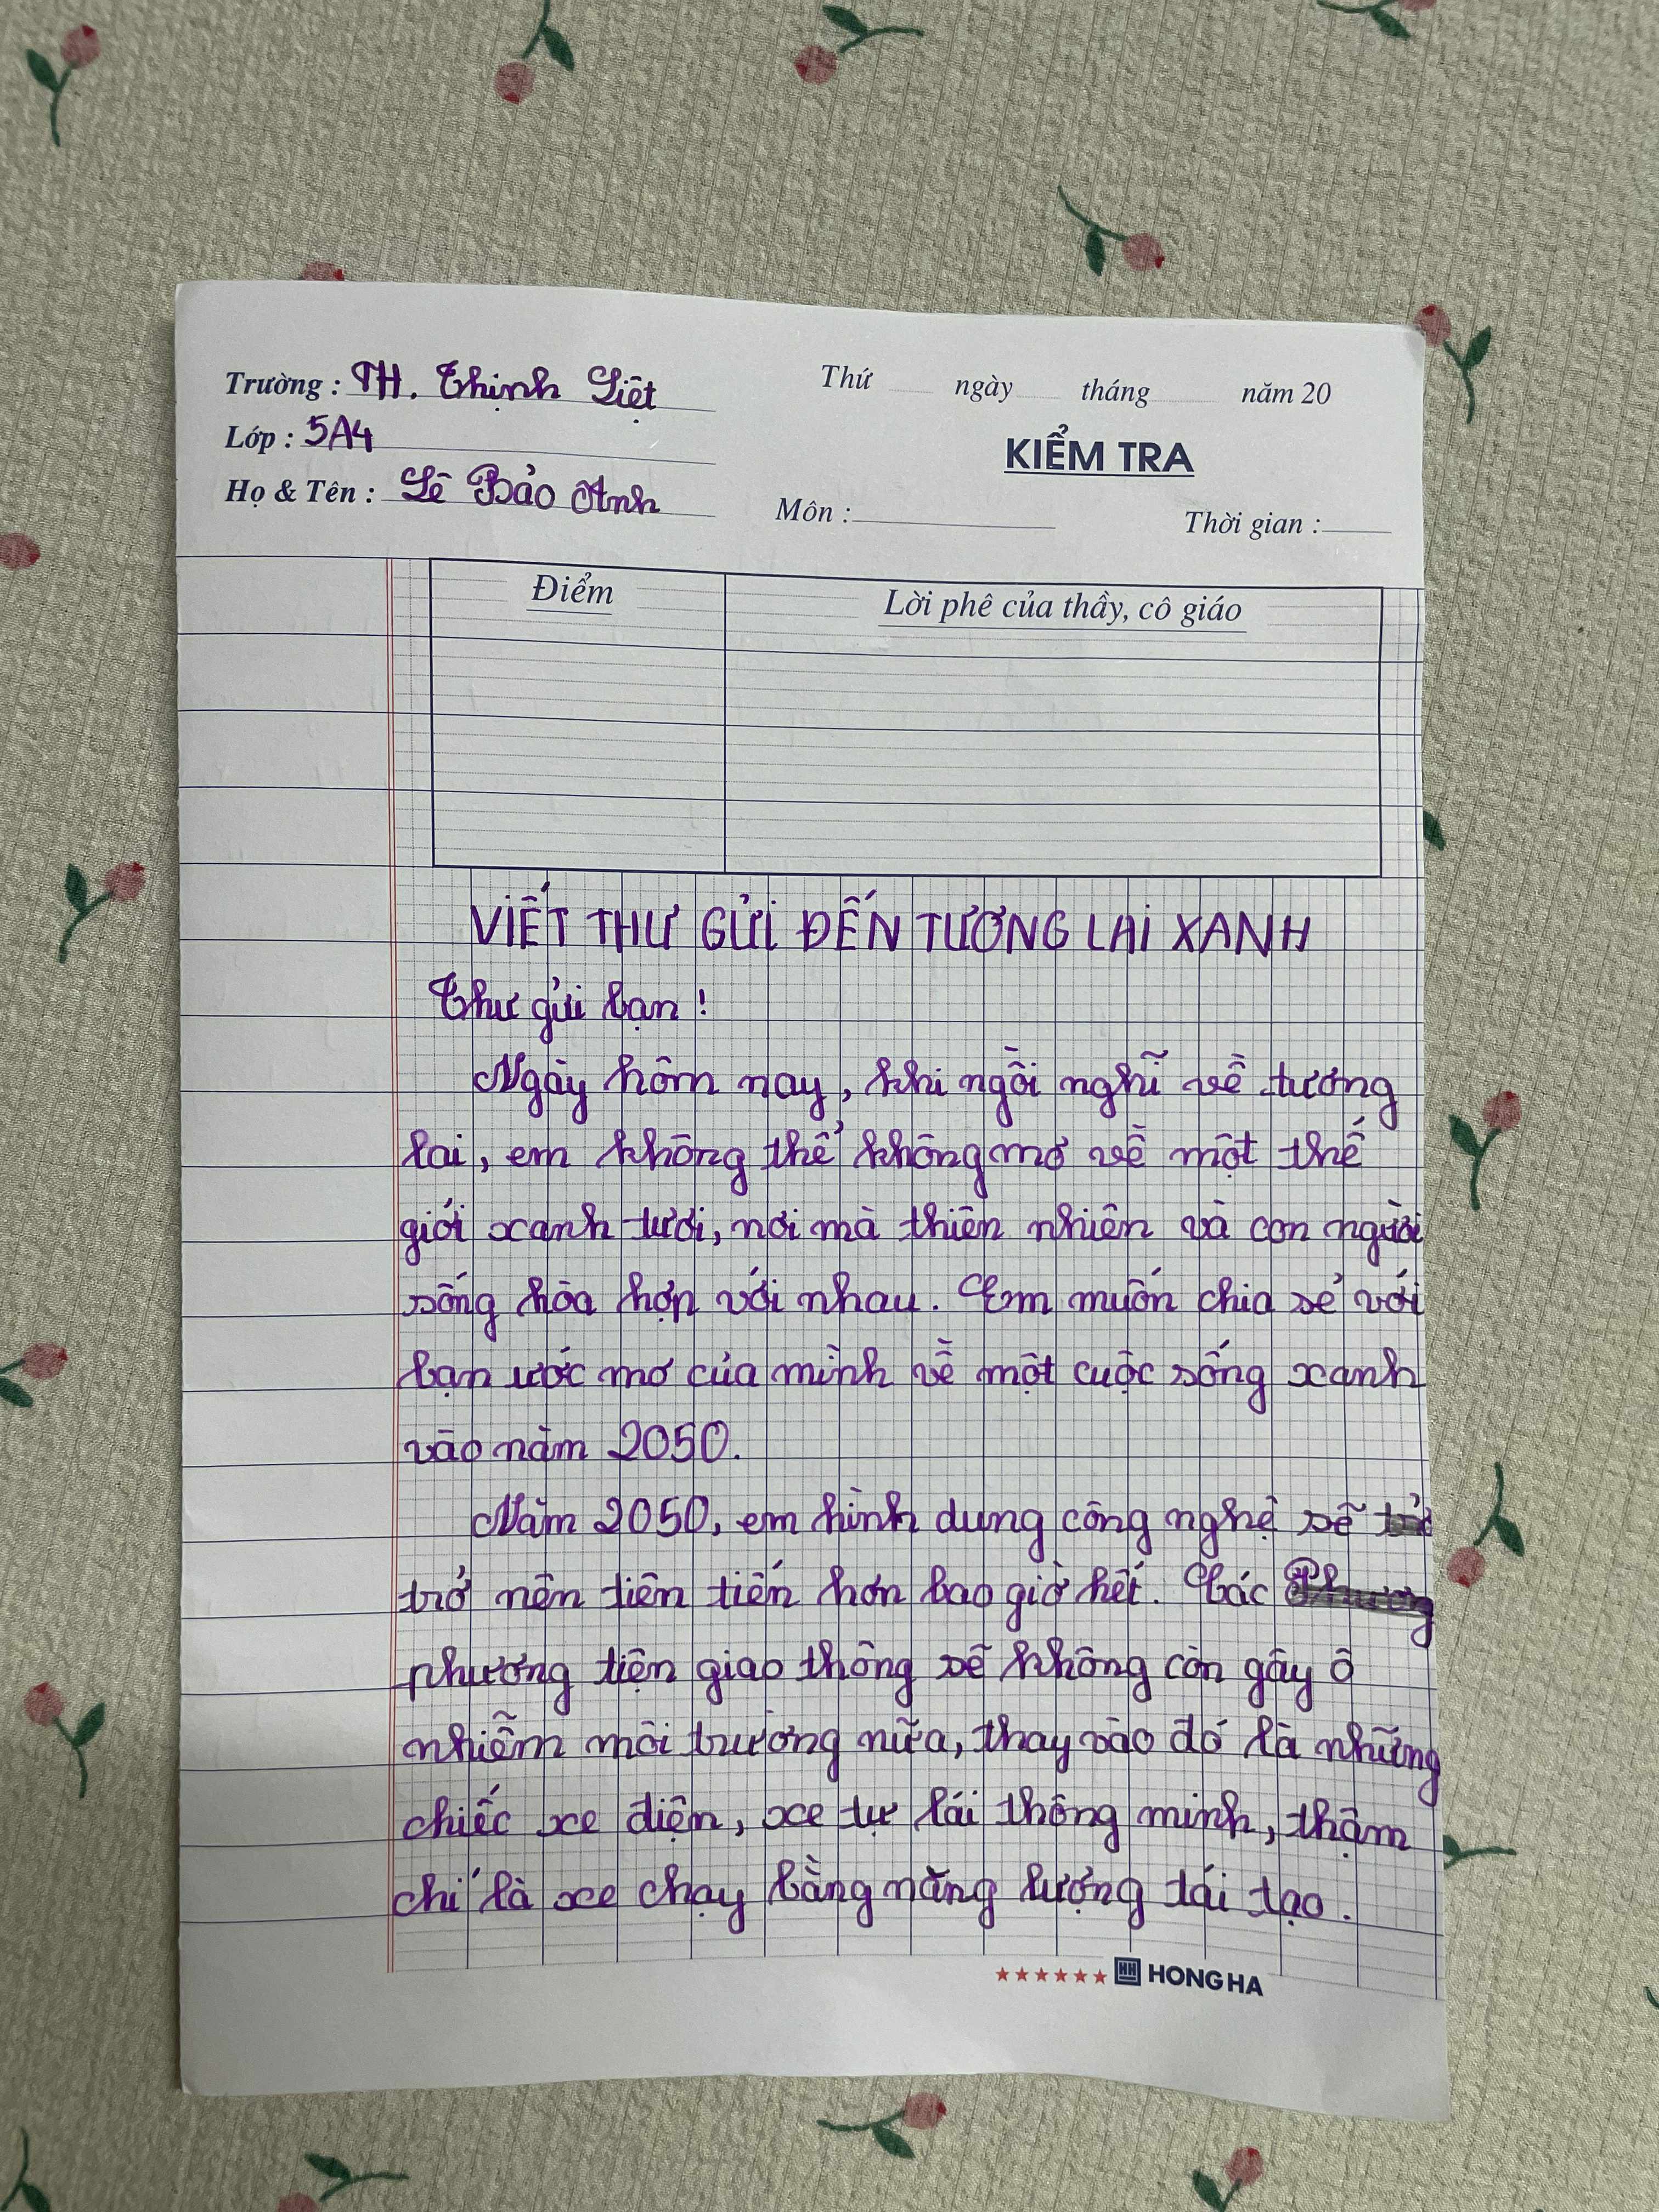 Trường : TH. Thịnh Liệt
Thứ ngày tháng năm 20
Lớp : 5A4
KIỂM TRA
Họ & Tên : Lê Bảo Anh
Môn :
Thời gian :
Điểm
Lời phê của thầy, cô giáo
VIẾT THƯ GỬI ĐẾN TƯƠNG LAI XANH
Thư gửi bạn !
Ngày hôm nay, khi ngồi nghĩ về tương
lai, em không thể không mơ về một thế
giới xanh tươi, nơi mà thiên nhiên và con người
sống hòa hợp với nhau. Em muốn chia sẻ với
bạn ước mơ của mình về một cuộc sống xanh
vào năm 2050.
Năm 2050, em hình dung công nghệ sẽ
trở nên tiên tiến hơn bao giờ hết. Các
phương tiện giao thông sẽ không còn gây ô
nhiễm môi trường nữa, thay vào đó là những
chiếc xe điện, xe tự lái thông minh, thậm
chí là xe chạy bằng năng lượng tái tạo.
HONG HA